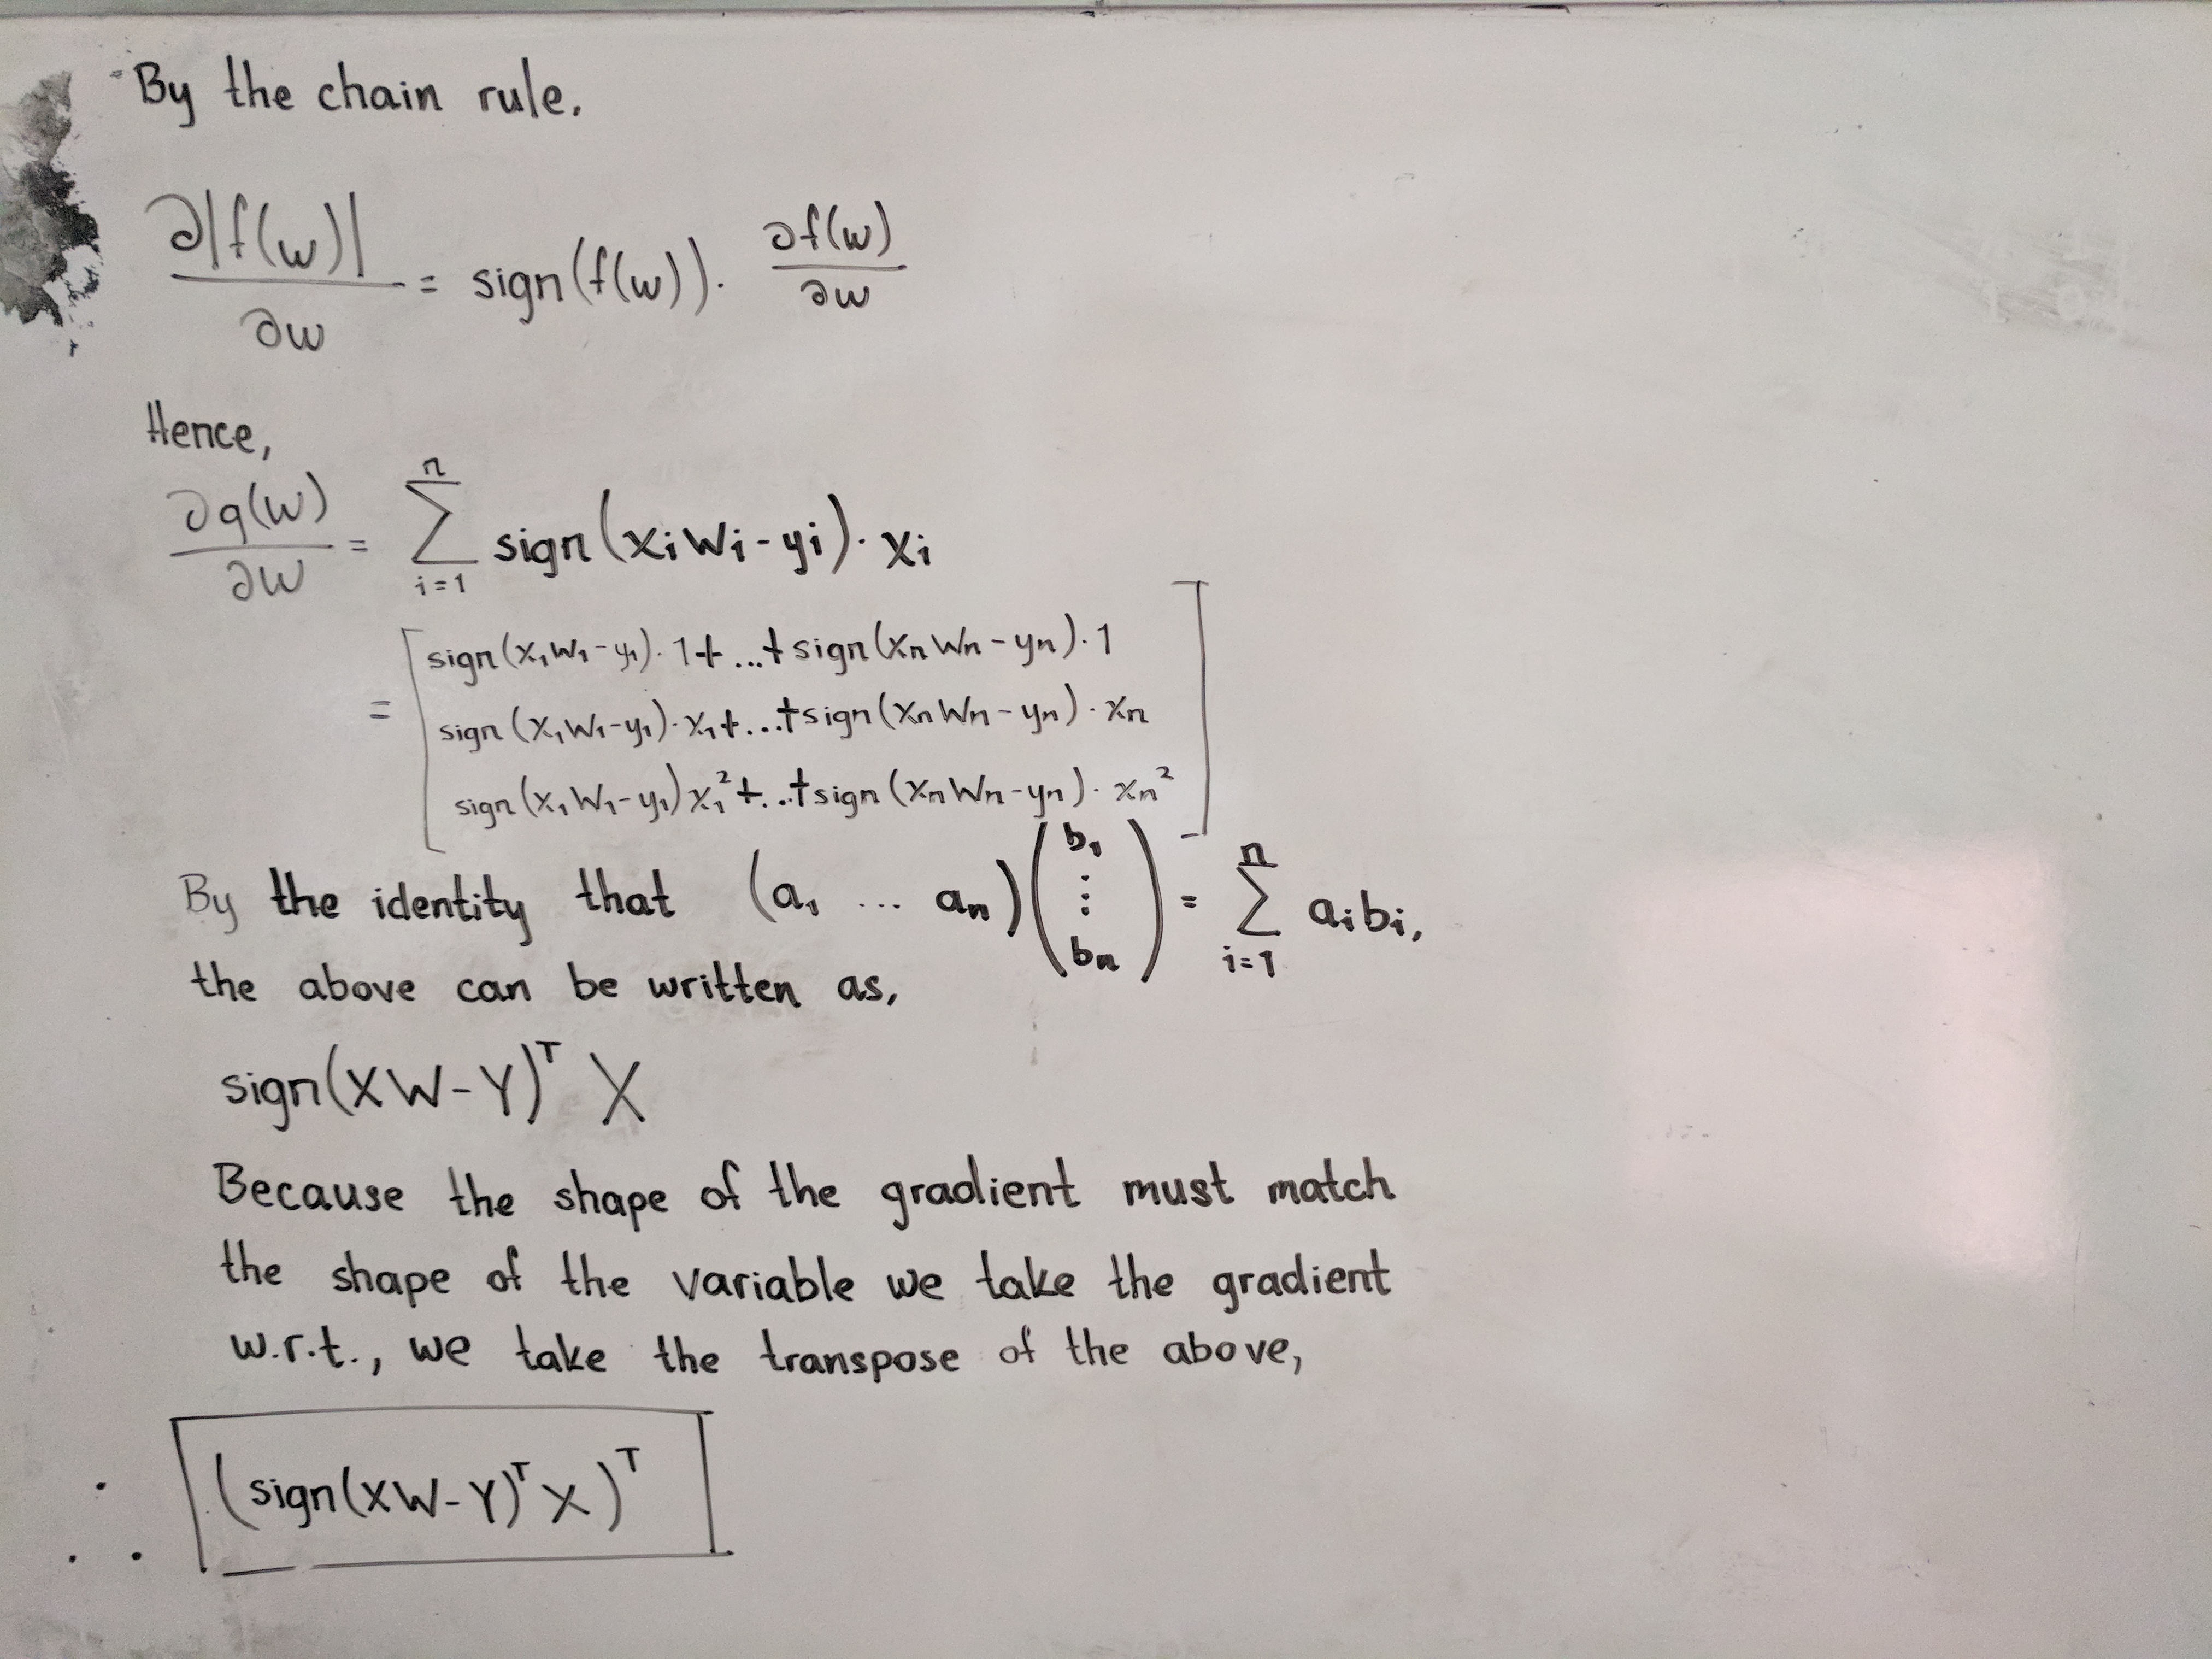 By the chain rule,
∂|f(w)|/∂w = sign(f(w)) · ∂f(w)/∂w
Hence,
∂g(W)/∂W = ∑_{i=1}^{n} sign(xᵢWᵢ - yᵢ) · xᵢ
= [sign(x₁W₁ - y₁) · 1 + ... + sign(xₙWₙ - yₙ) · 1
sign(x₁W₁ - y₁) · x₁ + ... + sign(xₙWₙ - yₙ) · xₙ
sign(x₁W₁ - y₁) x₁² + ... + sign(xₙWₙ - yₙ) · xₙ²]
By the identity that (a₁ ... aₙ)(b₁ ⋮ bₙ) = ∑_{i=1}^{n} aᵢbᵢ,
the above can be written as,
sign(XW - Y)ᵀ X
Because the shape of the gradient must match
the shape of the variable we take the gradient
w.r.t., we take the transpose of the above,
∴ (sign(XW - Y)ᵀ X)ᵀ